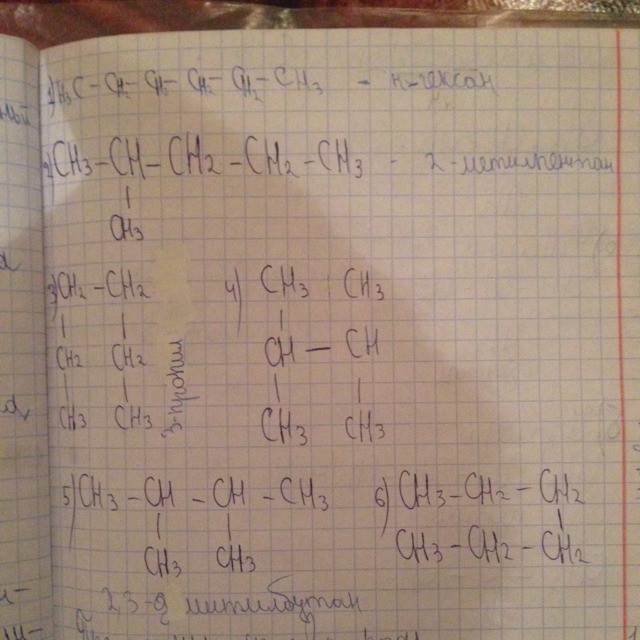 1) H3C – CH2 – CH2 – CH2 – CH2 – CH3 – н-гексан
2) CH3 – CH – CH2 – CH2 – CH3 – 2-метилпентан
CH3
3) CH2 – CH2
CH2 CH2
CH3 CH3
4) CH3 CH3
CH – CH
CH3 CH3
5) CH3 – CH – CH – CH3
CH3 CH3
6) CH3 – CH2 – CH2
CH3 – CH2 – CH2
2,3-диметилбутан